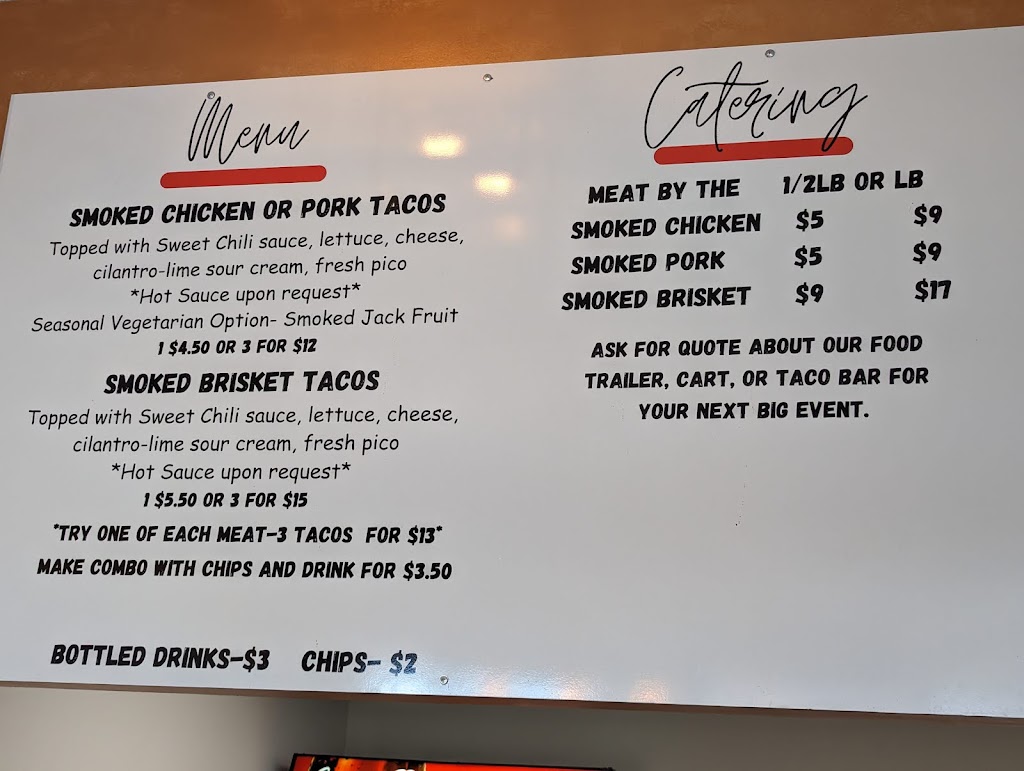 Menu
SMOKED CHICKEN OR PORK TACOS
Topped with Sweet Chili sauce, lettuce, cheese,
cilantro-lime sour cream, fresh pico
*Hot Sauce upon request*
Seasonal Vegetarian Option- Smoked Jack Fruit
1 $4.50 OR 3 FOR $12
SMOKED BRISKET TACOS
Topped with Sweet Chili sauce, lettuce, cheese,
cilantro-lime sour cream, fresh pico
*Hot Sauce upon request*
1 $5.50 OR 3 FOR $15
*TRY ONE OF EACH MEAT-3 TACOS FOR $13*
MAKE COMBO WITH CHIPS AND DRINK FOR $3.50
BOTTLED DRINKS-$3 CHIPS- $2
Catering
MEAT BY THE 1/2LB OR LB
SMOKED CHICKEN $5 $9
SMOKED PORK $5 $9
SMOKED BRISKET $9 $17
ASK FOR QUOTE ABOUT OUR FOOD
TRAILER, CART, OR TACO BAR FOR
YOUR NEXT BIG EVENT.